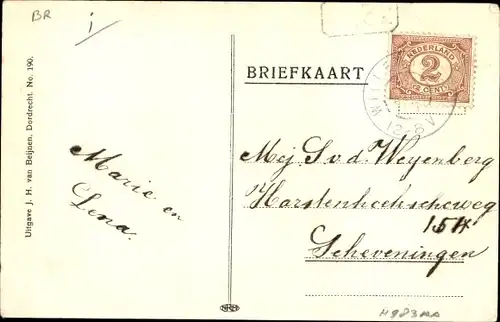 BR
i
Uitgave J. H. van Beijnen, Dordrecht. No. 190.
Marie en
Lena.
BRIEFKAART
NEDERLAND
2
(2 CENT)
Mej S. v. d. Weyenberg
Harstenhoekscheweg
154
Scheveningen